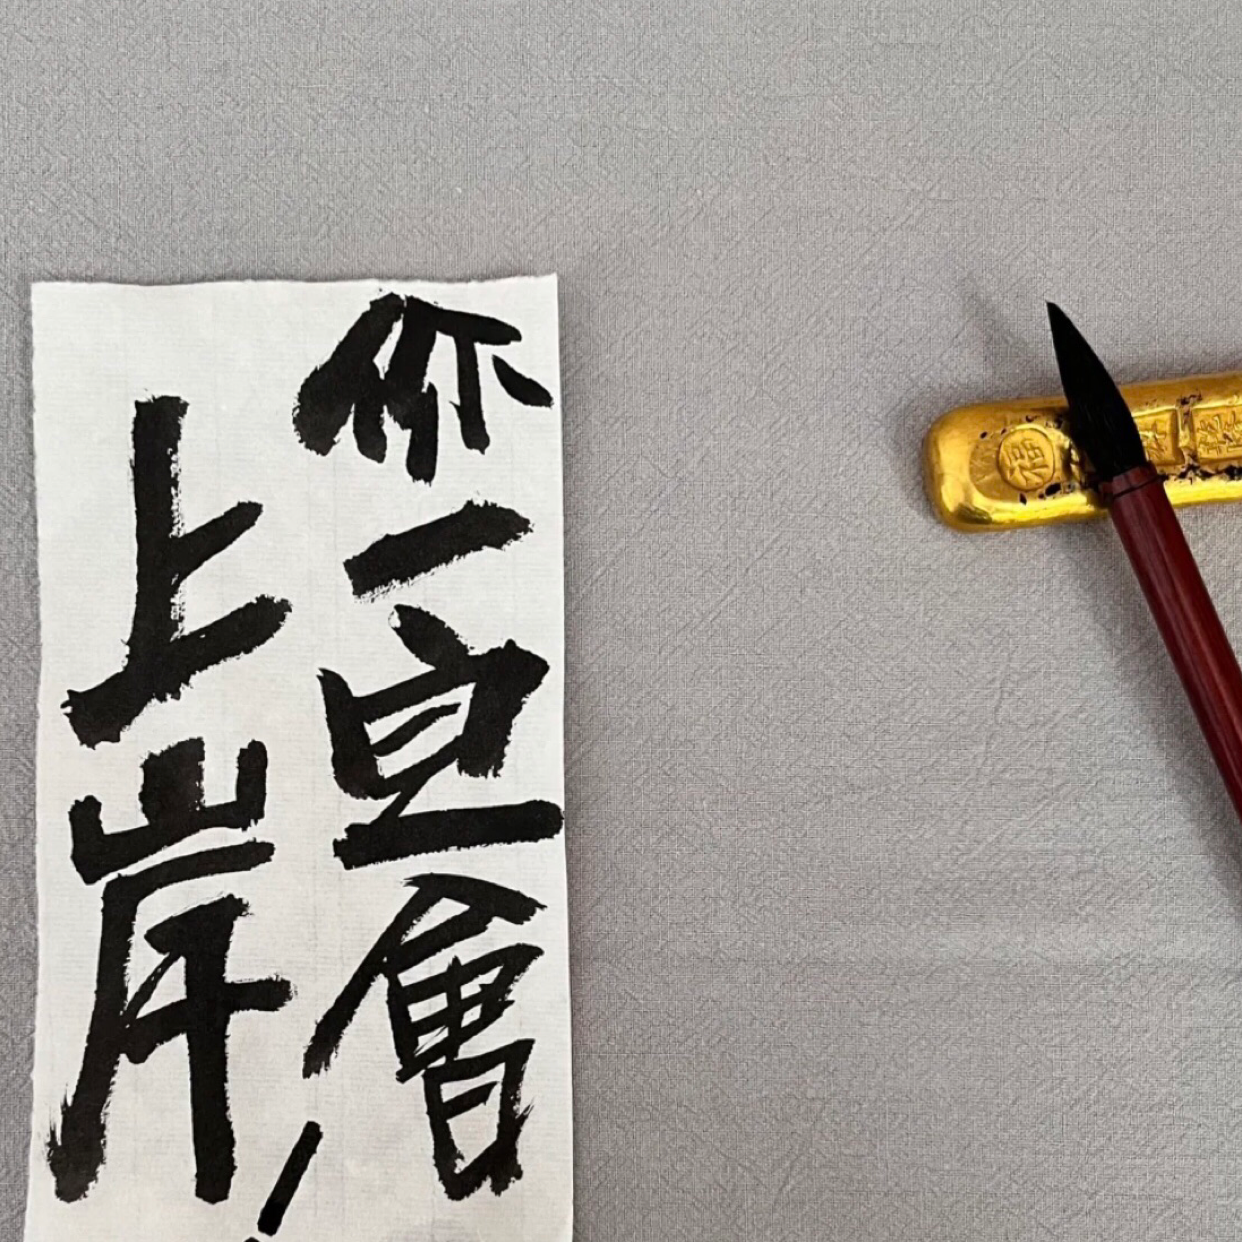 你一定會
上岸！
福